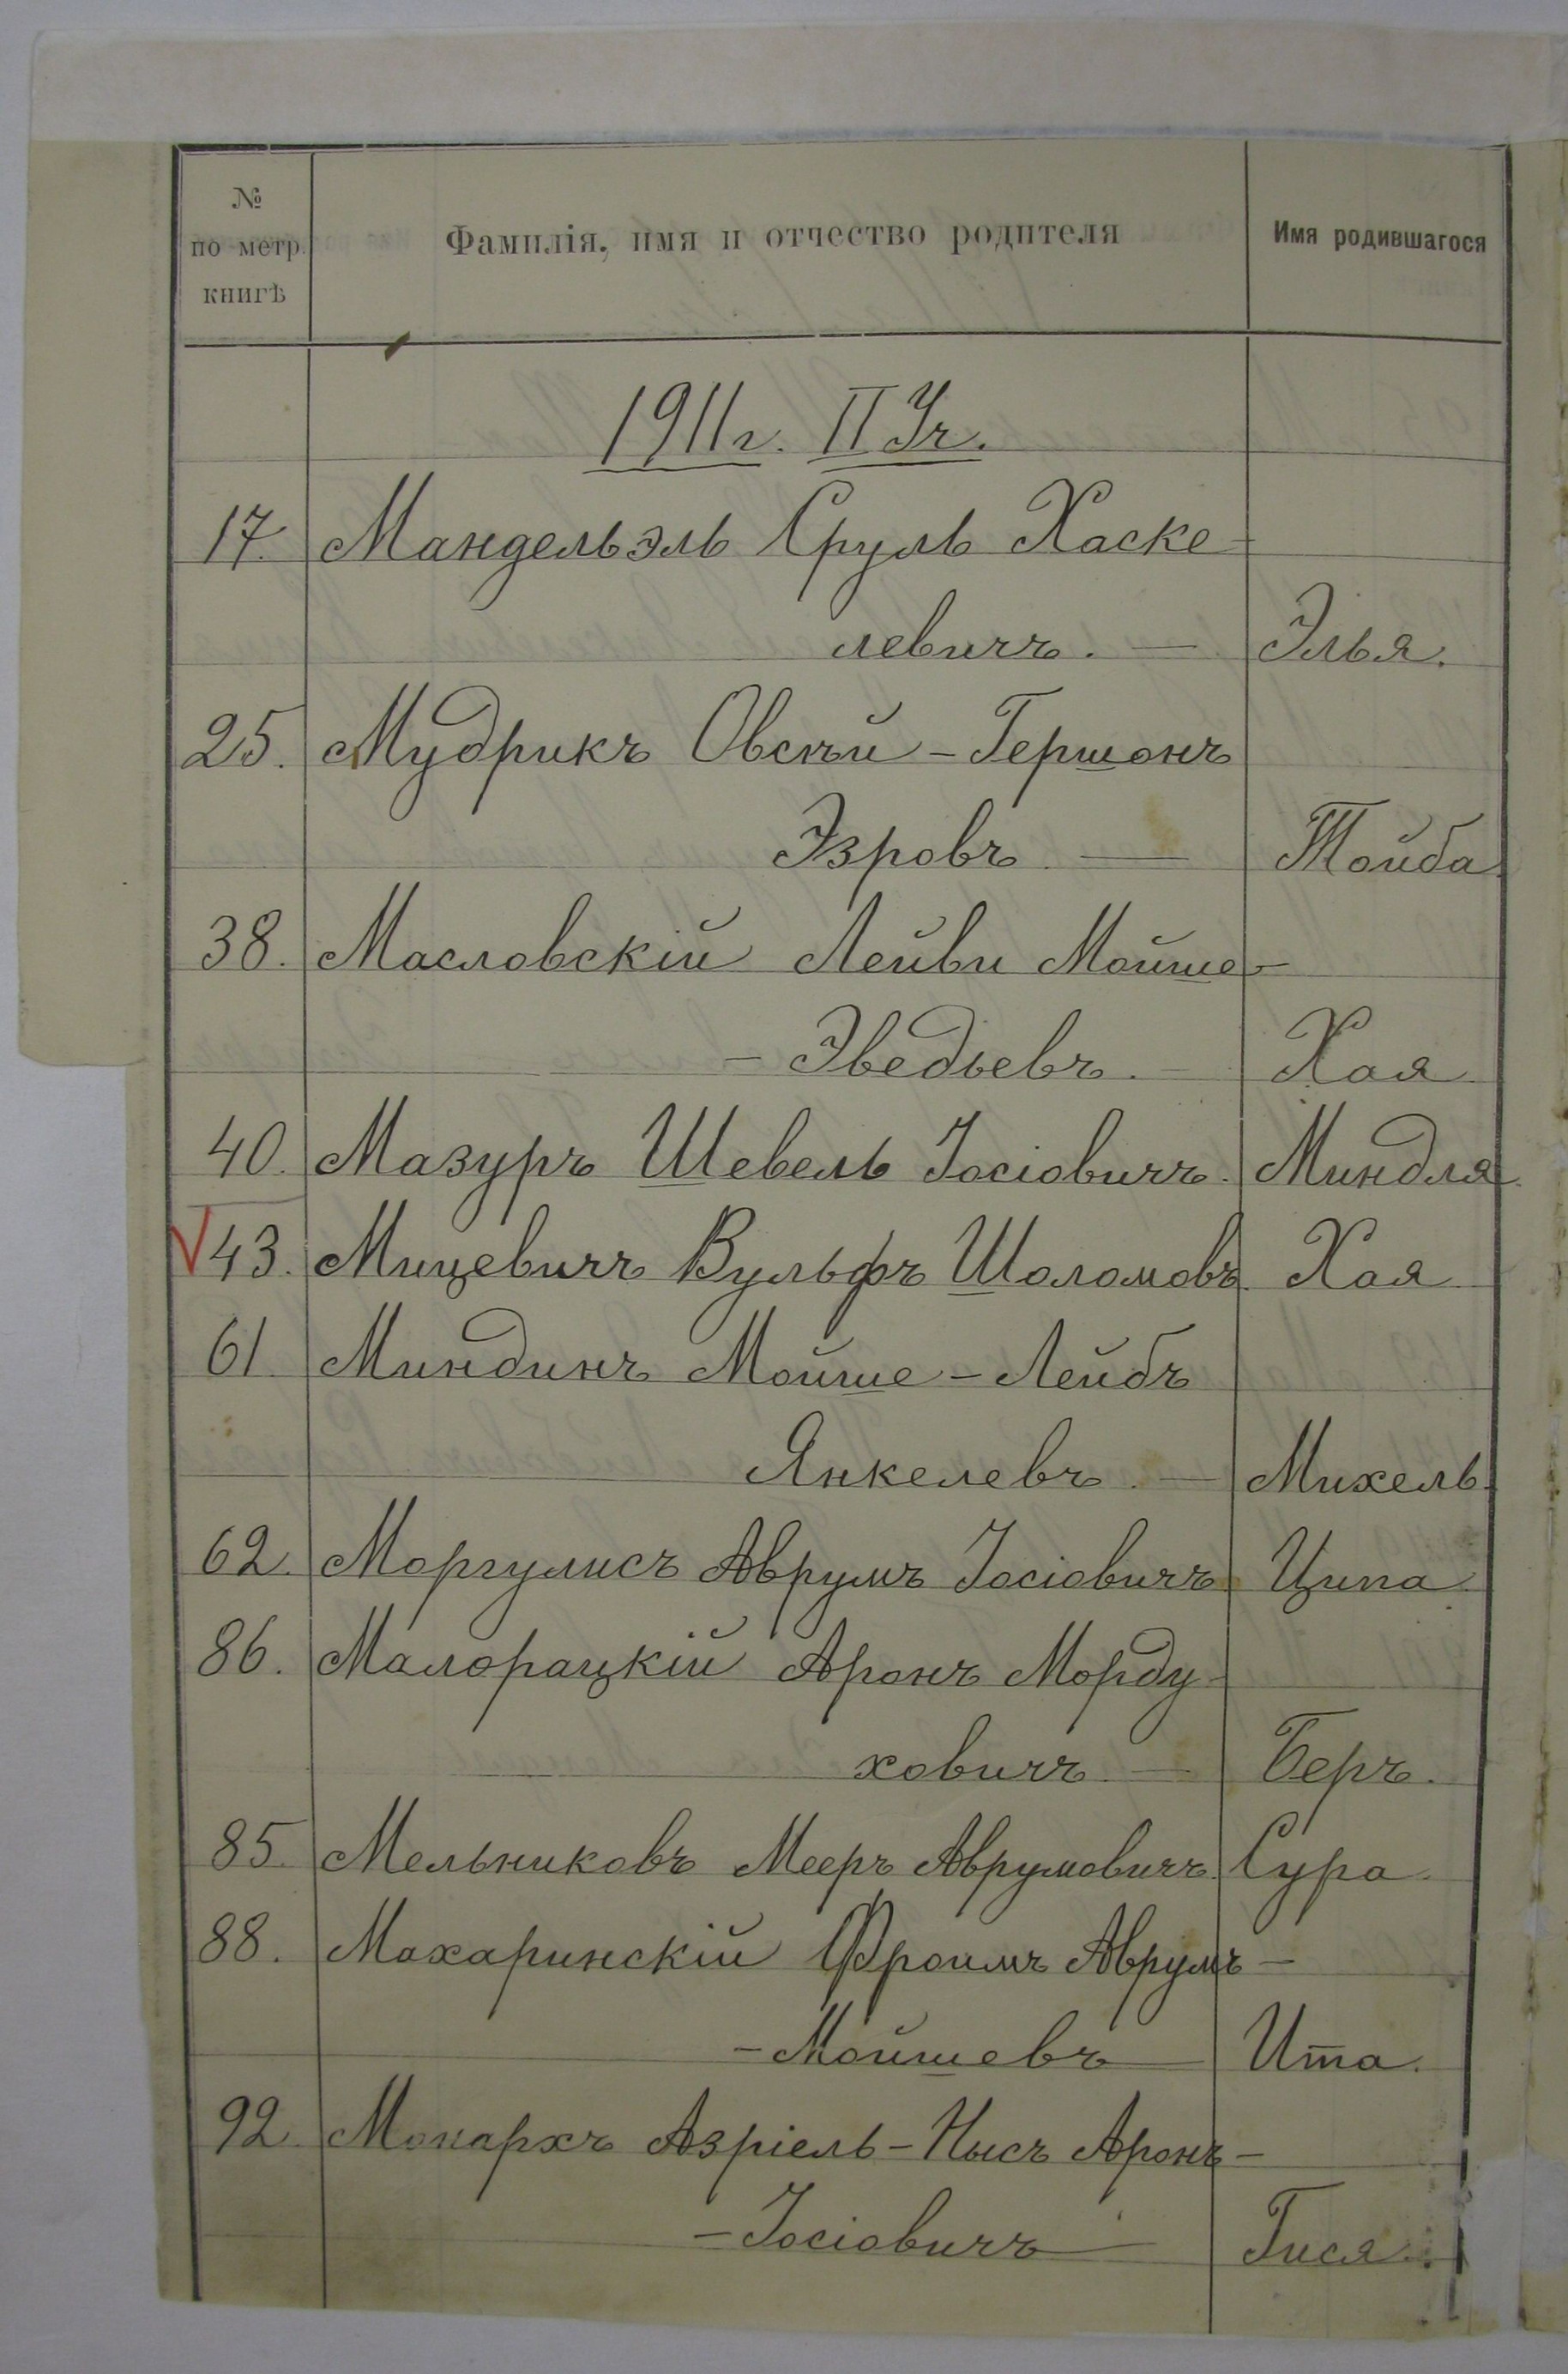 № по метр. книгѣ | Фамилія, имя и отчество родителя | Имя родившагося
1911 г. II Уч.
17. Мандельэль Сруль Хаске-
левичъ. — Элья.
25. Мудрикъ Овсѣй-Гершонъ
Эзровъ — Тойба.
38. Масловскій Лейви Мойше-
-Эведьевъ. — Хая
40. Мазуръ Шевель Іосіовичъ. Миндля.
43. Мицевичъ Вульфъ Шоломовъ. Хая
61. Миндинъ Мойше-Лейбъ
Янкелевъ. — Михель.
62. Моргулисъ Аврумъ Іосіовичъ Ципа
86. Малорацкій Аронъ Морду-
ховичъ — Беръ.
85. Мельниковъ Мееръ Аврумовичъ. Сура.
88. Махаринскій Фроимъ Аврумъ-
-Мойшевъ — Ита.
92. Монархъ Азріель-Нысъ Аронъ-
-Іосіовичъ — Гися.